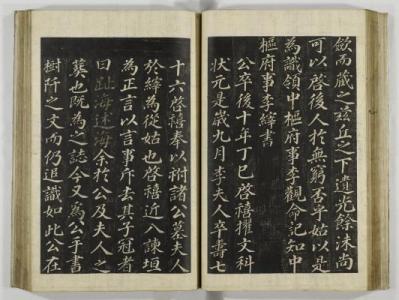 歛而藏之玆丘之下遺光餘沫尚
可以啓後人於無窮否乎姑以是
為識領中樞府事李觀命記知中
樞府事李縡書
公卒後十年丁巳啓禧擢文科
狀元是歲九月李夫人卒壽七
十六啓禧奉以祔諸公墓夫人
於縡為從姑也啓禧近入諫垣
為正言以言事斥去其子冠者
曰趾海述海余於公及夫人之
葬也既為之誌今又為公手書
樹阡之文而仍追識如此公在